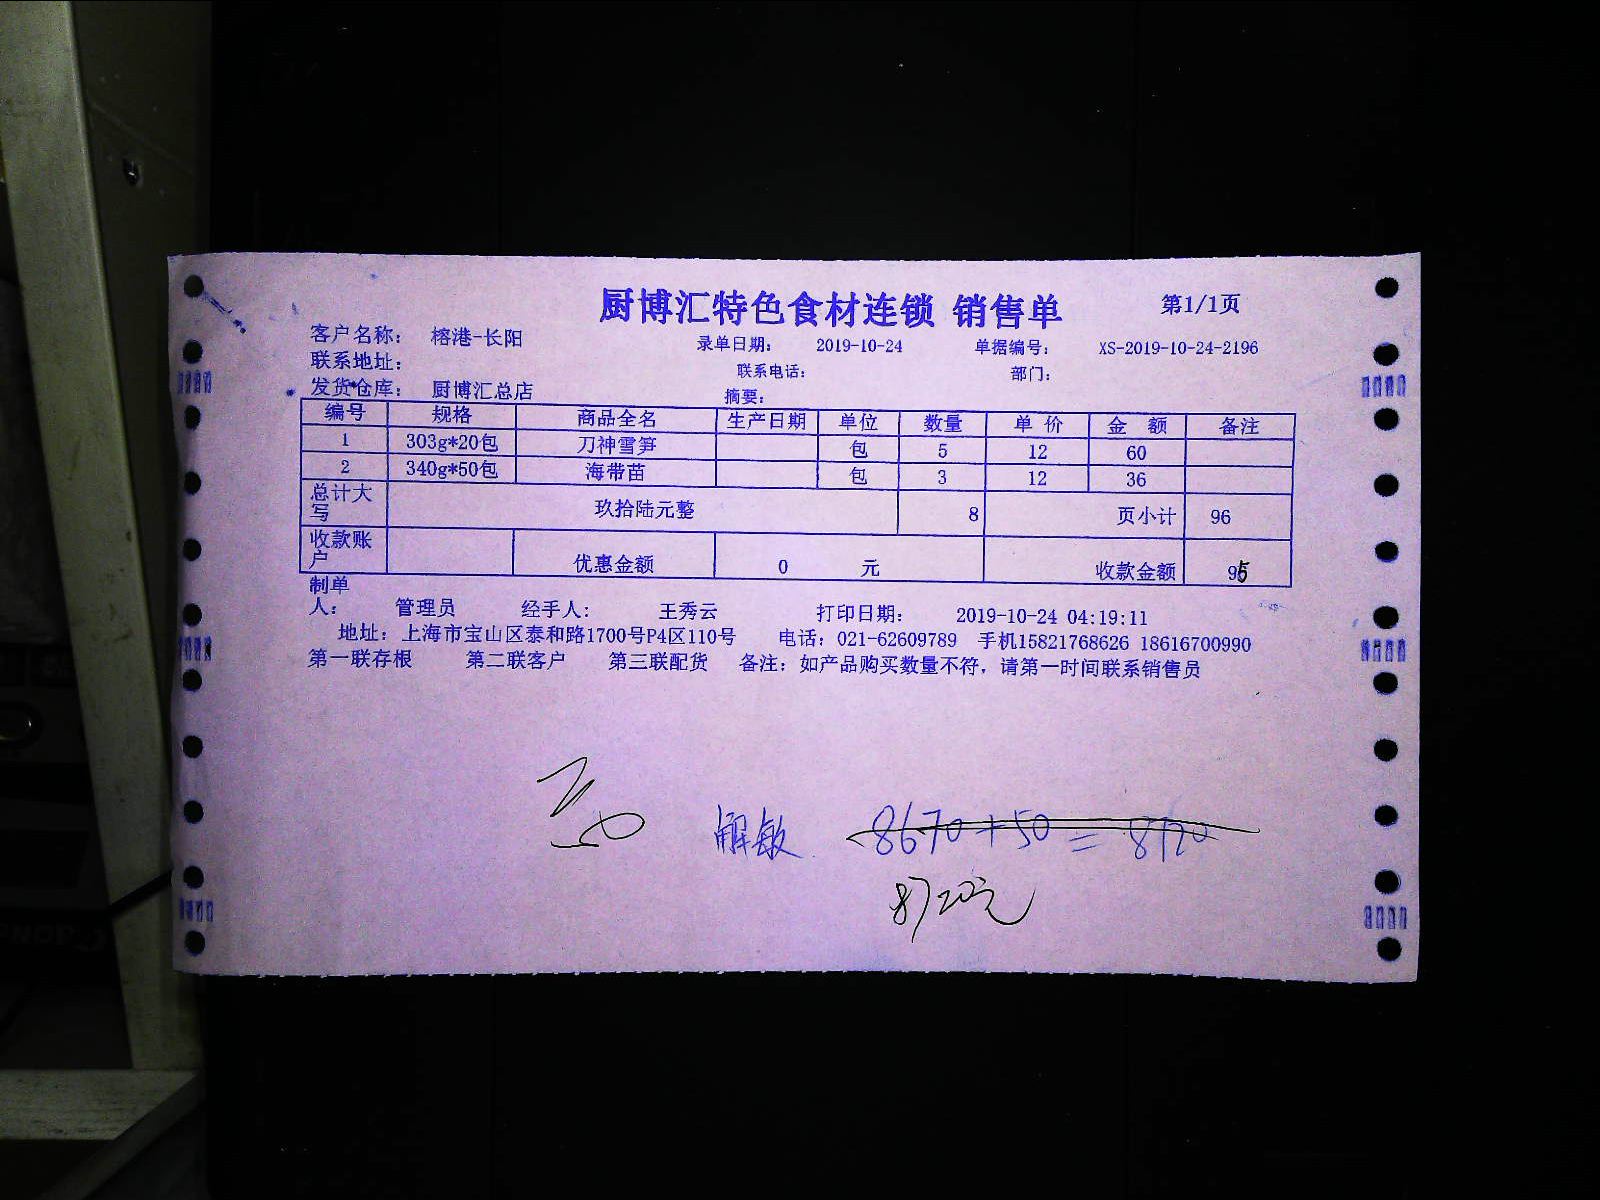 厨博汇特色食材连锁 销售单 第1/1页
客户名称: 榕港-长阳 录单日期: 2019-10-24 单据编号: XS-2019-10-24-2196
联系地址: 联系电话: 部门:
发货仓库: 厨博汇总店 摘要:
编号 规格 商品全名 生产日期 单位 数量 单 价 金 额 备注
1 303g*20包 刀神雪笋 包 5 12 60
2 340g*50包 海带苗 包 3 12 36
总计大写 玖拾陆元整 8 页小计 96
收款账户 优惠金额 0 元 收款金额 95
制单人: 管理员 经手人: 王秀云 打印日期: 2019-10-24 04:19:11
地址: 上海市宝山区泰和路1700号P4区110号 电话: 021-62609789 手机15821768626 18616700990
第一联存根 第二联客户 第三联配货 备注: 如产品购买数量不符, 请第一时间联系销售员
解敏 8670+50=8720
8720元